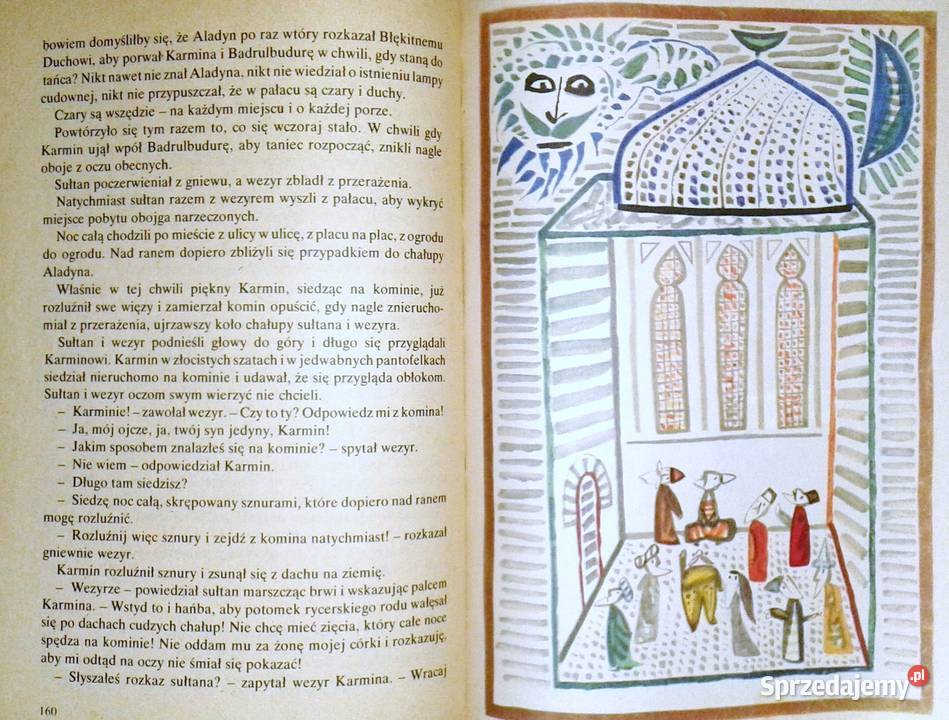 bowiem domyśliłby się, że Aladyn po raz wtóry rozkazał Błękitnemu
Duchowi, aby porwał Karmina i Badrulbudurę w chwili, gdy staną do
tańca? Nikt nawet nie znał Aladyna, nikt nie wiedział o istnieniu lampy
cudownej, nikt nie przypuszczał, że w pałacu są czary i duchy.
Czary są wszędzie – na każdym miejscu i o każdej porze.
Powtórzyło się tym razem to, co się wczoraj stało. W chwili gdy
Karmin ujął wpół Badrulbudurę, aby taniec rozpocząć, znikli nagle
oboje z oczu obecnych.
Sułtan poczerwieniał z gniewu, a wezyr zbladł z przerażenia.
Natychmiast sułtan razem z wezyrem wyszli z pałacu, aby wykryć
miejsce pobytu obojga narzeczonych.
Noc całą chodzili po mieście z ulicy w ulicę, z placu na plac, z ogrodu
do ogrodu. Nad ranem dopiero zbliżyli się przypadkiem do chałupy
Aladyna.
Właśnie w tej chwili piękny Karmin, siedząc na kominie, już
rozluźnił swe więzy i zamierzał komin opuścić, gdy nagle znierucho-
miał z przerażenia, ujrzawszy koło chałupy sułtana i wezyra.
Sułtan i wezyr podnieśli głowy do góry i długo się przyglądali
Karminowi. Karmin w złocistych szatach i w jedwabnych pantofelkach
siedział nieruchomo na kominie i udawał, że się przygląda obłokom.
Sułtan i wezyr oczom swym wierzyć nie chcieli.
– Karminie! – zawołał wezyr. – Czy to ty? Odpowiedz mi z komina!
– Ja, mój ojcze, ja, twój syn jedyny, Karmin!
– Jakim sposobem znalazłeś się na kominie? – spytał wezyr.
– Nie wiem – odpowiedział Karmin.
– Długo tam siedzisz?
– Siedzę noc całą, skrępowany sznurami, które dopiero nad ranem
mogę rozluźnić.
– Rozluźnij więc sznury i zejdź z komina natychmiast! – rozkazał
gniewnie wezyr.
Karmin rozluźnił sznury i zsunął się z dachu na ziemię.
– Wezyrze – powiedział sułtan marszcząc brwi i wskazując palcem
Karmina. – Wstyd to i hańba, aby potomek rycerskiego rodu wałęsał
się po dachach cudzych chałup! Nie chcę mieć zięcia, który całe noce
spędza na kominie! Nie oddam mu za żonę mojej córki i rozkazuję,
aby mi odtąd na oczy nie śmiał się pokazać!
– Słyszałeś rozkaz sułtana? – zapytał wezyr Karmina. – Wracaj
160
Sprzedajemy.pl